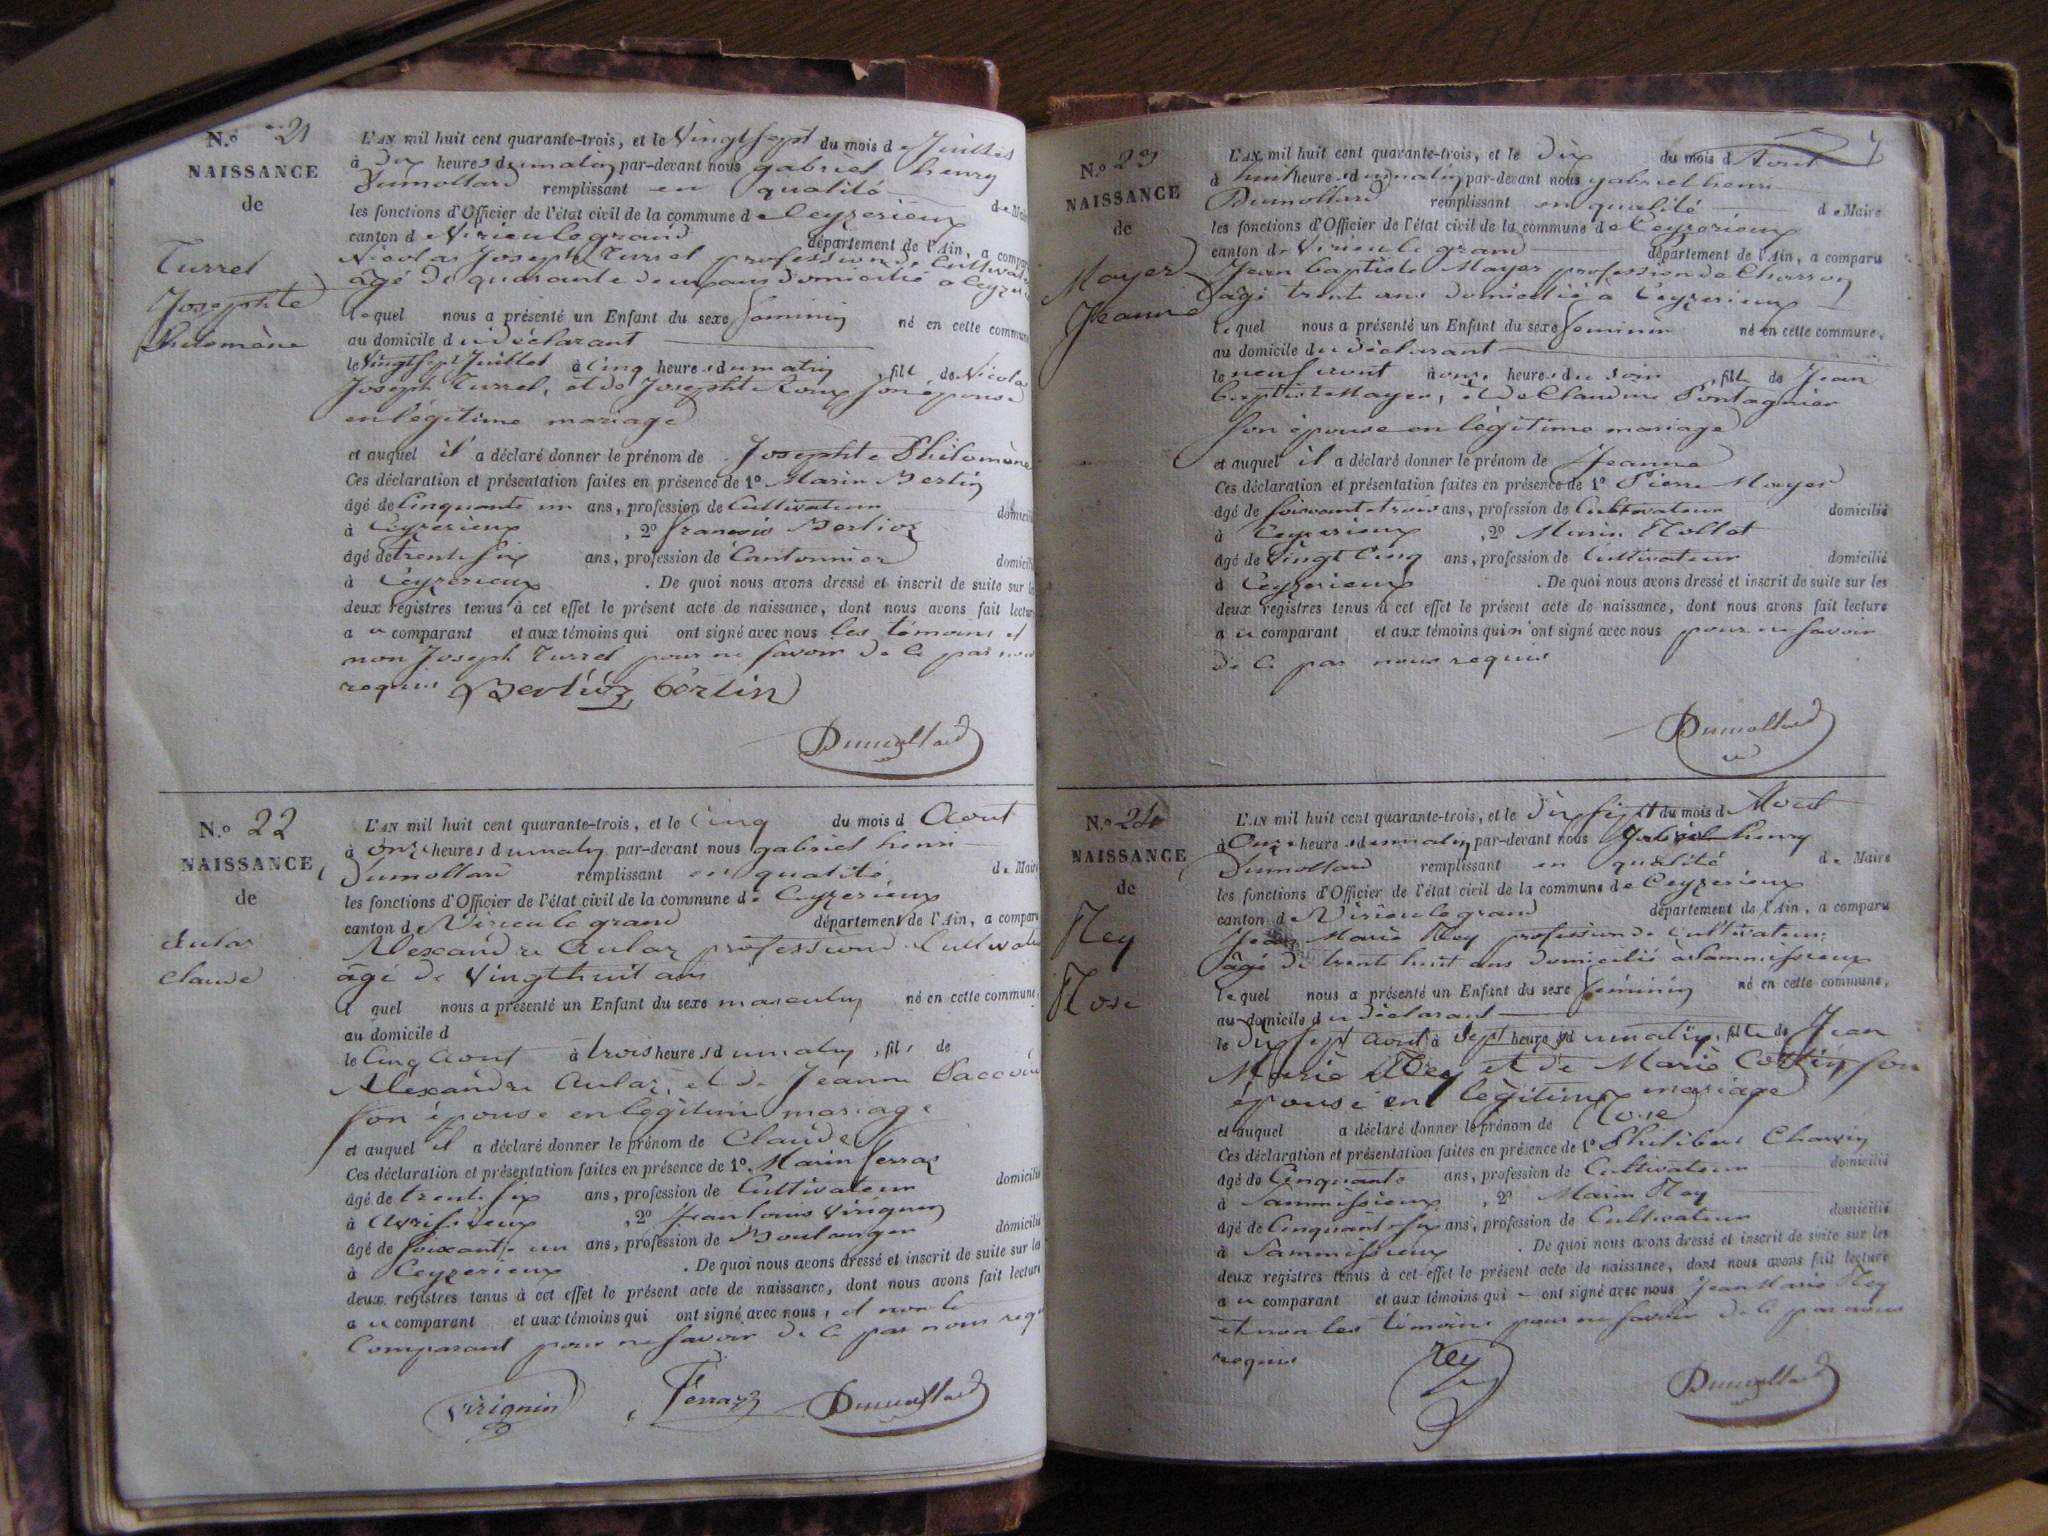 N.° 21
NAISSANCE
de
Turrel
Josephte
Philomène
L'AN mil huit cent quarante-trois, et le Vingt sept du mois de Juillet
à dix heures du matin par-devant nous gabriel henry
Dumollard remplissant en qualité de Maire
les fonctions d'Officier de l'état civil de la commune de Ceyzerieux
canton de Virieu le grand département de l'Ain, a comparu
Nicolas Joseph Turrel profession de Cultivateur
âgé de quarante deux ans domicilié à Ceyzerieux
lequel nous a présenté un Enfant du sexe féminin né en cette commune
au domicile du déclarant
le Vingt sept Juillet à Cinq heures du matin, fille de Nicolas
Joseph Turrel, et de Josephte Roux son épouse
en légitime mariage
et auquel il a déclaré donner le prénom de Josephte Philomène
Ces déclaration et présentation faites en présence de 1° Marin Bertin
âgé de Cinquante un ans, profession de Cultivateur domicilié
à Ceyzerieux, 2° francois Berlioz
âgé de trente six ans, profession de Cantonnier domicilié
à Ceyzerieux. De quoi nous avons dressé et inscrit de suite sur les
deux registres tenus à cet effet le présent acte de naissance, dont nous avons fait lecture
a u comparant et aux témoins qui ont signé avec nous les témoins et
non Joseph Turrel pour ne savoir de ce par nous
requis Berlioz Bertin
Dumollard
N.° 22
NAISSANCE
de
Aular
Claude
L'AN mil huit cent quarante-trois, et le Cinq du mois d Aout
à onze heures du matin par-devant nous gabriel henri
Dumollard remplissant en qualité de Maire
les fonctions d'Officier de l'état civil de la commune de Ceyzerieux
canton de Virieu le grand département de l'Ain, a comparu
Alexandre Aular profession de Cultivateur
âgé de Vingt huit ans
l quel nous a présenté un Enfant du sexe masculin né en cette commune,
au domicile d
le Cinq Aout à trois heures du matin, fils de
Alexandre Aular, et de Jeanne
son épouse en légitime mariage
et auquel il a déclaré donner le prénom de Claude
Ces déclaration et présentation faites en présence de 1° Marin ferraz
âgé de trente six ans, profession de Cultivateur domicilié
à, 2° Jean Louis Virignin
âgé de soixante un ans, profession de Boulanger domicilié
à Ceyzerieux. De quoi nous avons dressé et inscrit de suite sur les
deux registres tenus à cet effet le présent acte de naissance, dont nous avons fait lecture
a u comparant et aux témoins qui ont signé avec nous, et non le
Comparant pour ne savoir de ce par nous requis
Virignin Ferraz Dumollard
7
N.° 23
NAISSANCE
de
Mayer
Jeanne
L'AN mil huit cent quarante-trois, et le dix du mois d Aout
à huit heures du matin par-devant nous gabriel henri
Dumollard remplissant en qualité de Maire
les fonctions d'Officier de l'état civil de la commune de Ceyzerieux
canton de Virieu le grand département de l'Ain, a comparu
Jean baptiste Mayer profession de Charron
âgé trente ans domicilié à Ceyzerieux
lequel nous a présenté un Enfant du sexe féminin né en cette commune,
au domicile du déclarant
le neuf aout à onze heures du soir, fille de Jean
baptiste Mayer, et de Claudine Pontagnier
son épouse en légitime mariage
et auquel il a déclaré donner le prénom de Jeanne
Ces déclaration et présentation faites en présence de 1° Pierre Mayer
âgé de soixante trois ans, profession de Cultivateur domicilié
à Ceyzerieux, 2° Marin Rollat
âgé de Vingt Cinq ans, profession de Cultivateur domicilié
à Ceyzerieux. De quoi nous avons dressé et inscrit de suite sur les
deux registres tenus à cet effet le présent acte de naissance, dont nous avons fait lecture
a u comparant et aux témoins qui n'ont signé avec nous pour ne savoir
de ce par nous requis
Dumollard
N.° 24
NAISSANCE
de
Rey
Rose
L'AN mil huit cent quarante-trois, et le dix sept du mois d Aout
à Onze heures du matin par-devant nous Gabriel henry
Dumollard remplissant en qualité de Maire
les fonctions d'Officier de l'état civil de la commune de Ceyzerieux
canton de Virieu le grand département de l'Ain, a comparu
Jean Marie Rey profession de Cultivateur
âgé de trente huit ans domicilié à Sammissieux
lequel nous a présenté un Enfant du sexe féminin né en cette commune,
au domicile du déclarant
le dix sept aout à sept heures du matin, fille de Jean
Marie Rey et de Marie Cottin son
épouse en légitime mariage
et auquel a déclaré donner le prénom de Rose
Ces déclaration et présentation faites en présence de 1° Philibert Charvin
âgé de Cinquante ans, profession de Cultivateur domicilié
à Sammissieux, 2° Marin Rey
âgé de Cinquante six ans, profession de Cultivateur domicilié
à Sammissieux. De quoi nous avons dressé et inscrit de suite sur les
deux registres tenus à cet effet le présent acte de naissance, dont nous avons fait lecture
a u comparant et aux témoins qui ont signé avec nous Jean Marie Rey
et non les témoins pour ne savoir de ce par nous
requis rey Dumollard